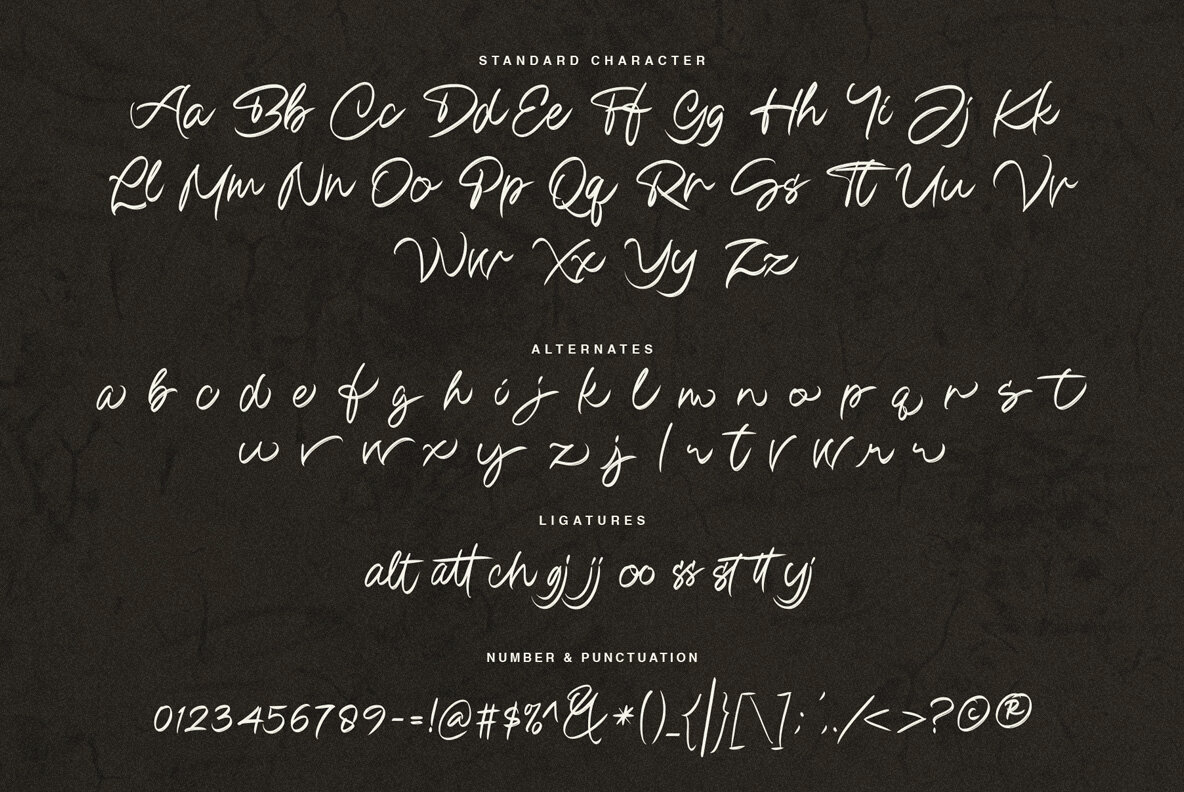 STANDARD CHARACTER
Aa Bb Cc Dd Ee Ff Gg Hh Ii Jj Kk
Ll Mm Nn Oo Pp Qq Rr Ss Tt Uu Vv
Ww Xx Yy Zz
ALTERNATES
a b c d e f g h i j k l m n o p q r s t
u v w x y z j l u t v w r u
LIGATURES
alt att ch gj jj oo ss st tt yj
NUMBER & PUNCTUATION
0123456789-=!@#$%^&*()_{|}[\]:;',./<>?©®